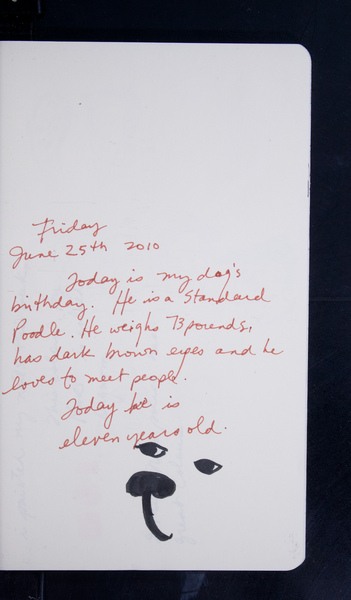 Friday
June 25th 2010
Today is my dog's
birthday. He is a Standard
Poodle. He weighs 73 pounds,
has dark brown eyes and he
loves to meet people.
Today he is
eleven years old.